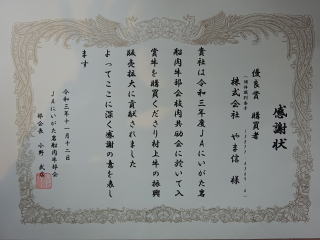 感謝状
優良賞 購買者
株式会社 やま信 様
貴社は令和三年度ＪＡにいがた岩
船肉牛部会枝肉共励会に於いて入
賞牛を購買くださり村上牛の振興
販売拡大に貢献されました
よってここに深く感謝の意を表し
ます
令和三年十一月十二日
ＪＡにいがた岩船肉牛部会
部会長 小野